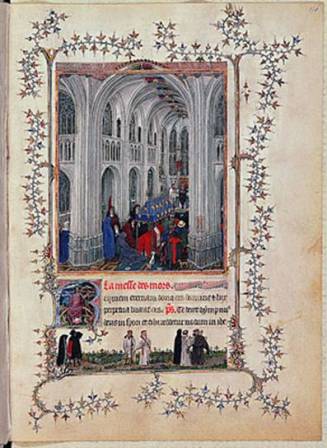 La messe des mors.
eternam dona eis domine & lux
perpetua luceat eis. ps. Te decet ympnus
deus in syon et tibi reddetur votum in ihe